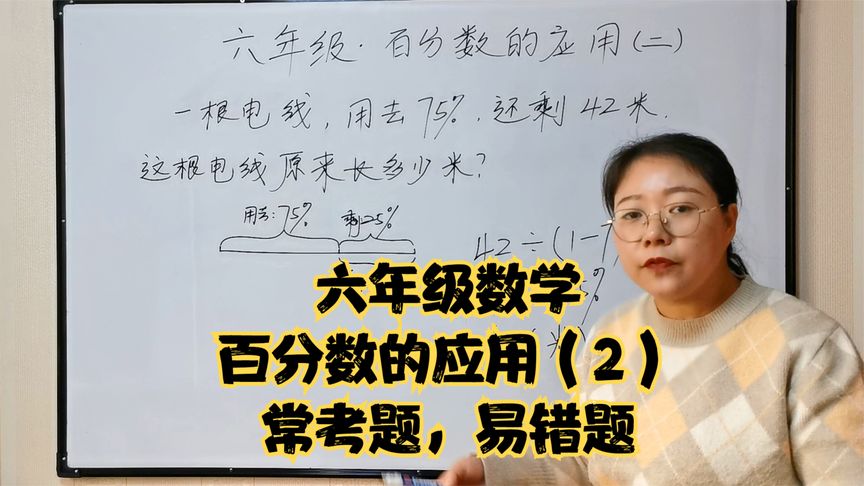 六年级·百分数的应用(二)
一根电线,用去75%.还剩42米.
这根电线原来长多少米?
用去:75% 剩25%
42÷(1-7
%
六年级数学
百分数的应用(2)
常考题,易错题